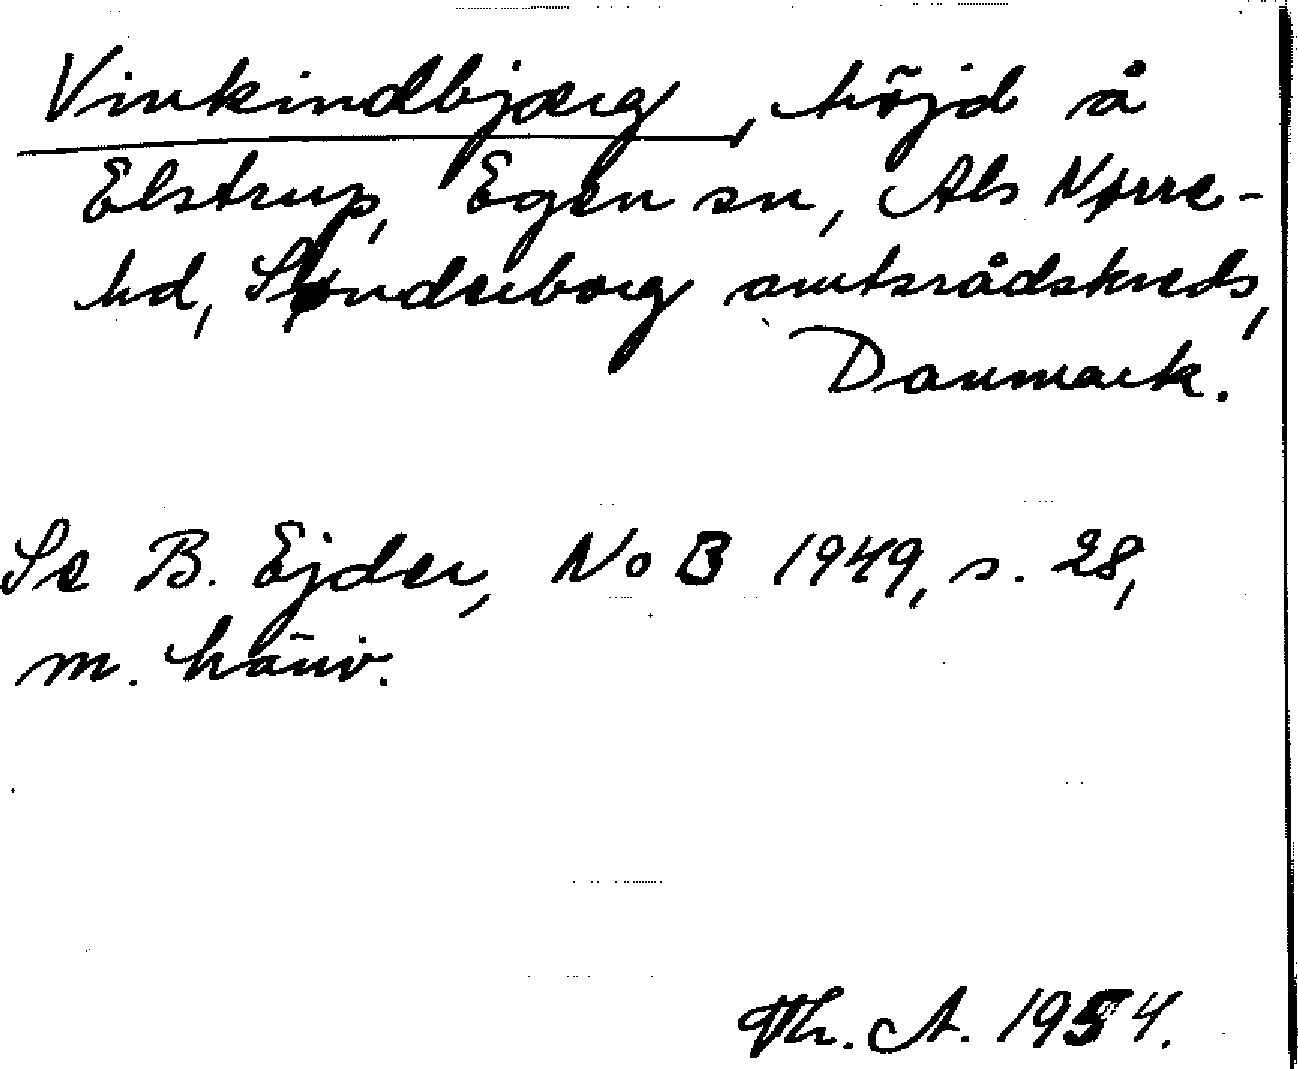 Vinkindbjærg, höjd å
Elstrup, Egen sn, Als Nørre-
hd, Sønderborg amtsrådskreds,
Danmark.
Se B. Ejder, NoB 1949, s. 28,
m. hänv.
Th. A. 1954.